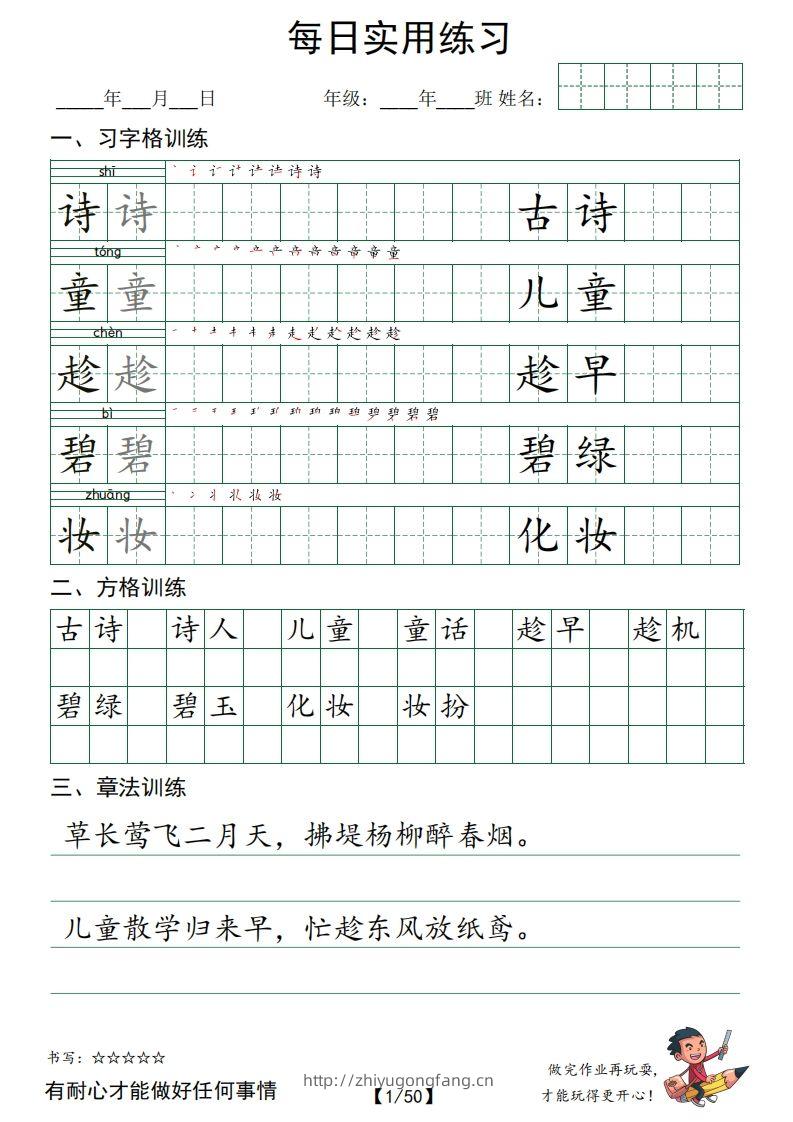 每日实用练习
_____年___月___日 年级：____年____班 姓名：
一、习字格训练
shī
诗 诗 古 诗
tóng
童 童 儿 童
chèn
趁 趁 趁 早
bì
碧 碧 碧 绿
zhuāng
妆 妆 化 妆
二、方格训练
古诗 诗人 儿童 童话 趁早 趁机
碧绿 碧玉 化妆 妆扮
三、章法训练
草长莺飞二月天，拂堤杨柳醉春烟。
儿童散学归来早，忙趁东风放纸鸢。
书写：☆☆☆☆☆
有耐心才能做好任何事情
http://zhiyugongfang.cn
【1/50】
做完作业再玩耍，
才能玩得更开心！